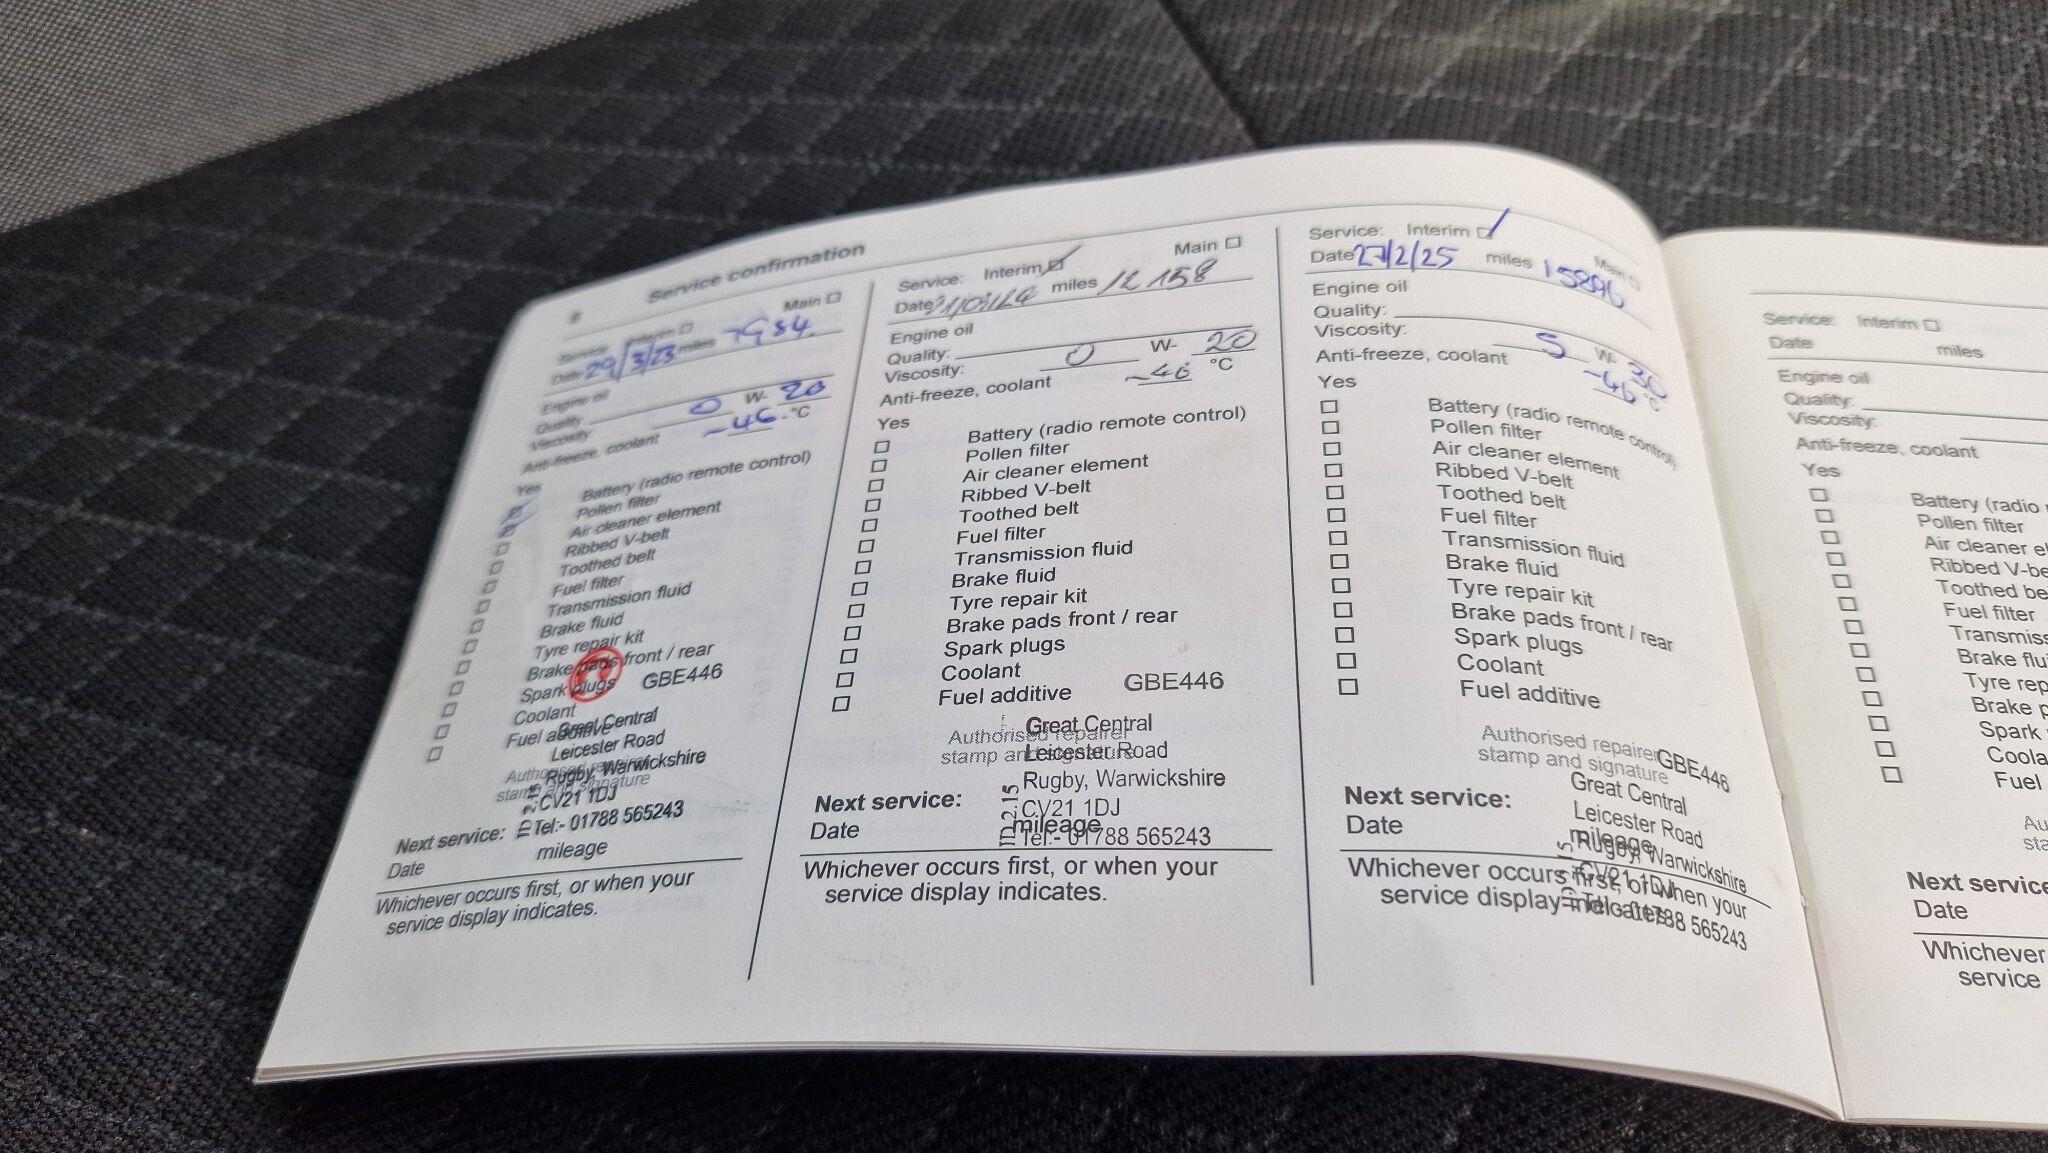 8 Service confirmation
Service: Interim Main
Date 29/3/23 miles 7984
Engine oil
Quality:
Viscosity: 0 W- 20
Anti-freeze, coolant -46 °C
Yes
Battery (radio remote control)
Pollen filter
Air cleaner element
Ribbed V-belt
Toothed belt
Fuel filter
Transmission fluid
Brake fluid
Tyre repair kit
Brake pads front / rear
Spark plugs GBE446
Coolant
Fuel additive
Great Central
Leicester Road
Authorised repairer
Rugby, Warwickshire
stamp and signature
CV21 1DJ
Next service: Tel:- 01788 565243
Date mileage
Whichever occurs first, or when your
service display indicates.
Service: Interim Main
Date miles 12 158
Engine oil
Quality:
Viscosity: 0 W- 20
Anti-freeze, coolant -46 °C
Yes
Battery (radio remote control)
Pollen filter
Air cleaner element
Ribbed V-belt
Toothed belt
Fuel filter
Transmission fluid
Brake fluid
Tyre repair kit
Brake pads front / rear
Spark plugs
Coolant
Fuel additive GBE446
Great Central
Authorised repairer
Leicester Road
stamp and signature
Rugby, Warwickshire
Next service: CV21 1DJ
Date mileage
ID 2.15 Tel:- 01788 565243
Whichever occurs first, or when your
service display indicates.
Service: Interim Main
Date 27/2/25 miles 15896
Engine oil
Quality:
Viscosity: 5 W- 30
Anti-freeze, coolant -46 °C
Yes
Battery (radio remote control)
Pollen filter
Air cleaner element
Ribbed V-belt
Toothed belt
Fuel filter
Transmission fluid
Brake fluid
Tyre repair kit
Brake pads front / rear
Spark plugs
Coolant
Fuel additive
Authorised repairer GBE446
stamp and signature
Great Central
Next service: Leicester Road
Date mileage
Rugby, Warwickshire
CV21 1DJ
Whichever occurs first, or when your
service display indicates.
Tel:- 01788 565243
Service: Interim
Date miles
Engine oil
Quality:
Viscosity:
Anti-freeze, coolant
Yes
Battery (radio
Pollen filter
Air cleaner
Ribbed
Toothed
Fuel filter
Brake
Tyre
Brake
Spark
Fuel
Next
Date
Whichever
service